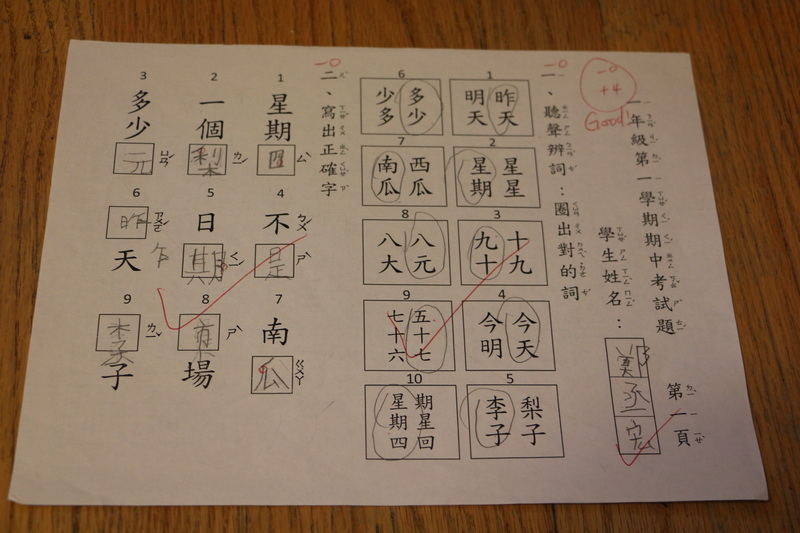 一年級第一學期期中考試題 第一頁
-0
+4
Good!
學生姓名：
一、聽聲辨詞：圈出對的詞
-0
1
昨天
明天
2
星星
星期
3
十九
九十
4
今天
今明
5
梨子
李子
6
多少
少多
7
西瓜
南瓜
8
八元
八大
9
五十七
七十六
10
期星回
星期四
二、寫出正確字
-0
1
星期四
2
一個梨
3
多少元
4
不是
5
日期
6
昨天
7
南瓜
8
市場
9
李子